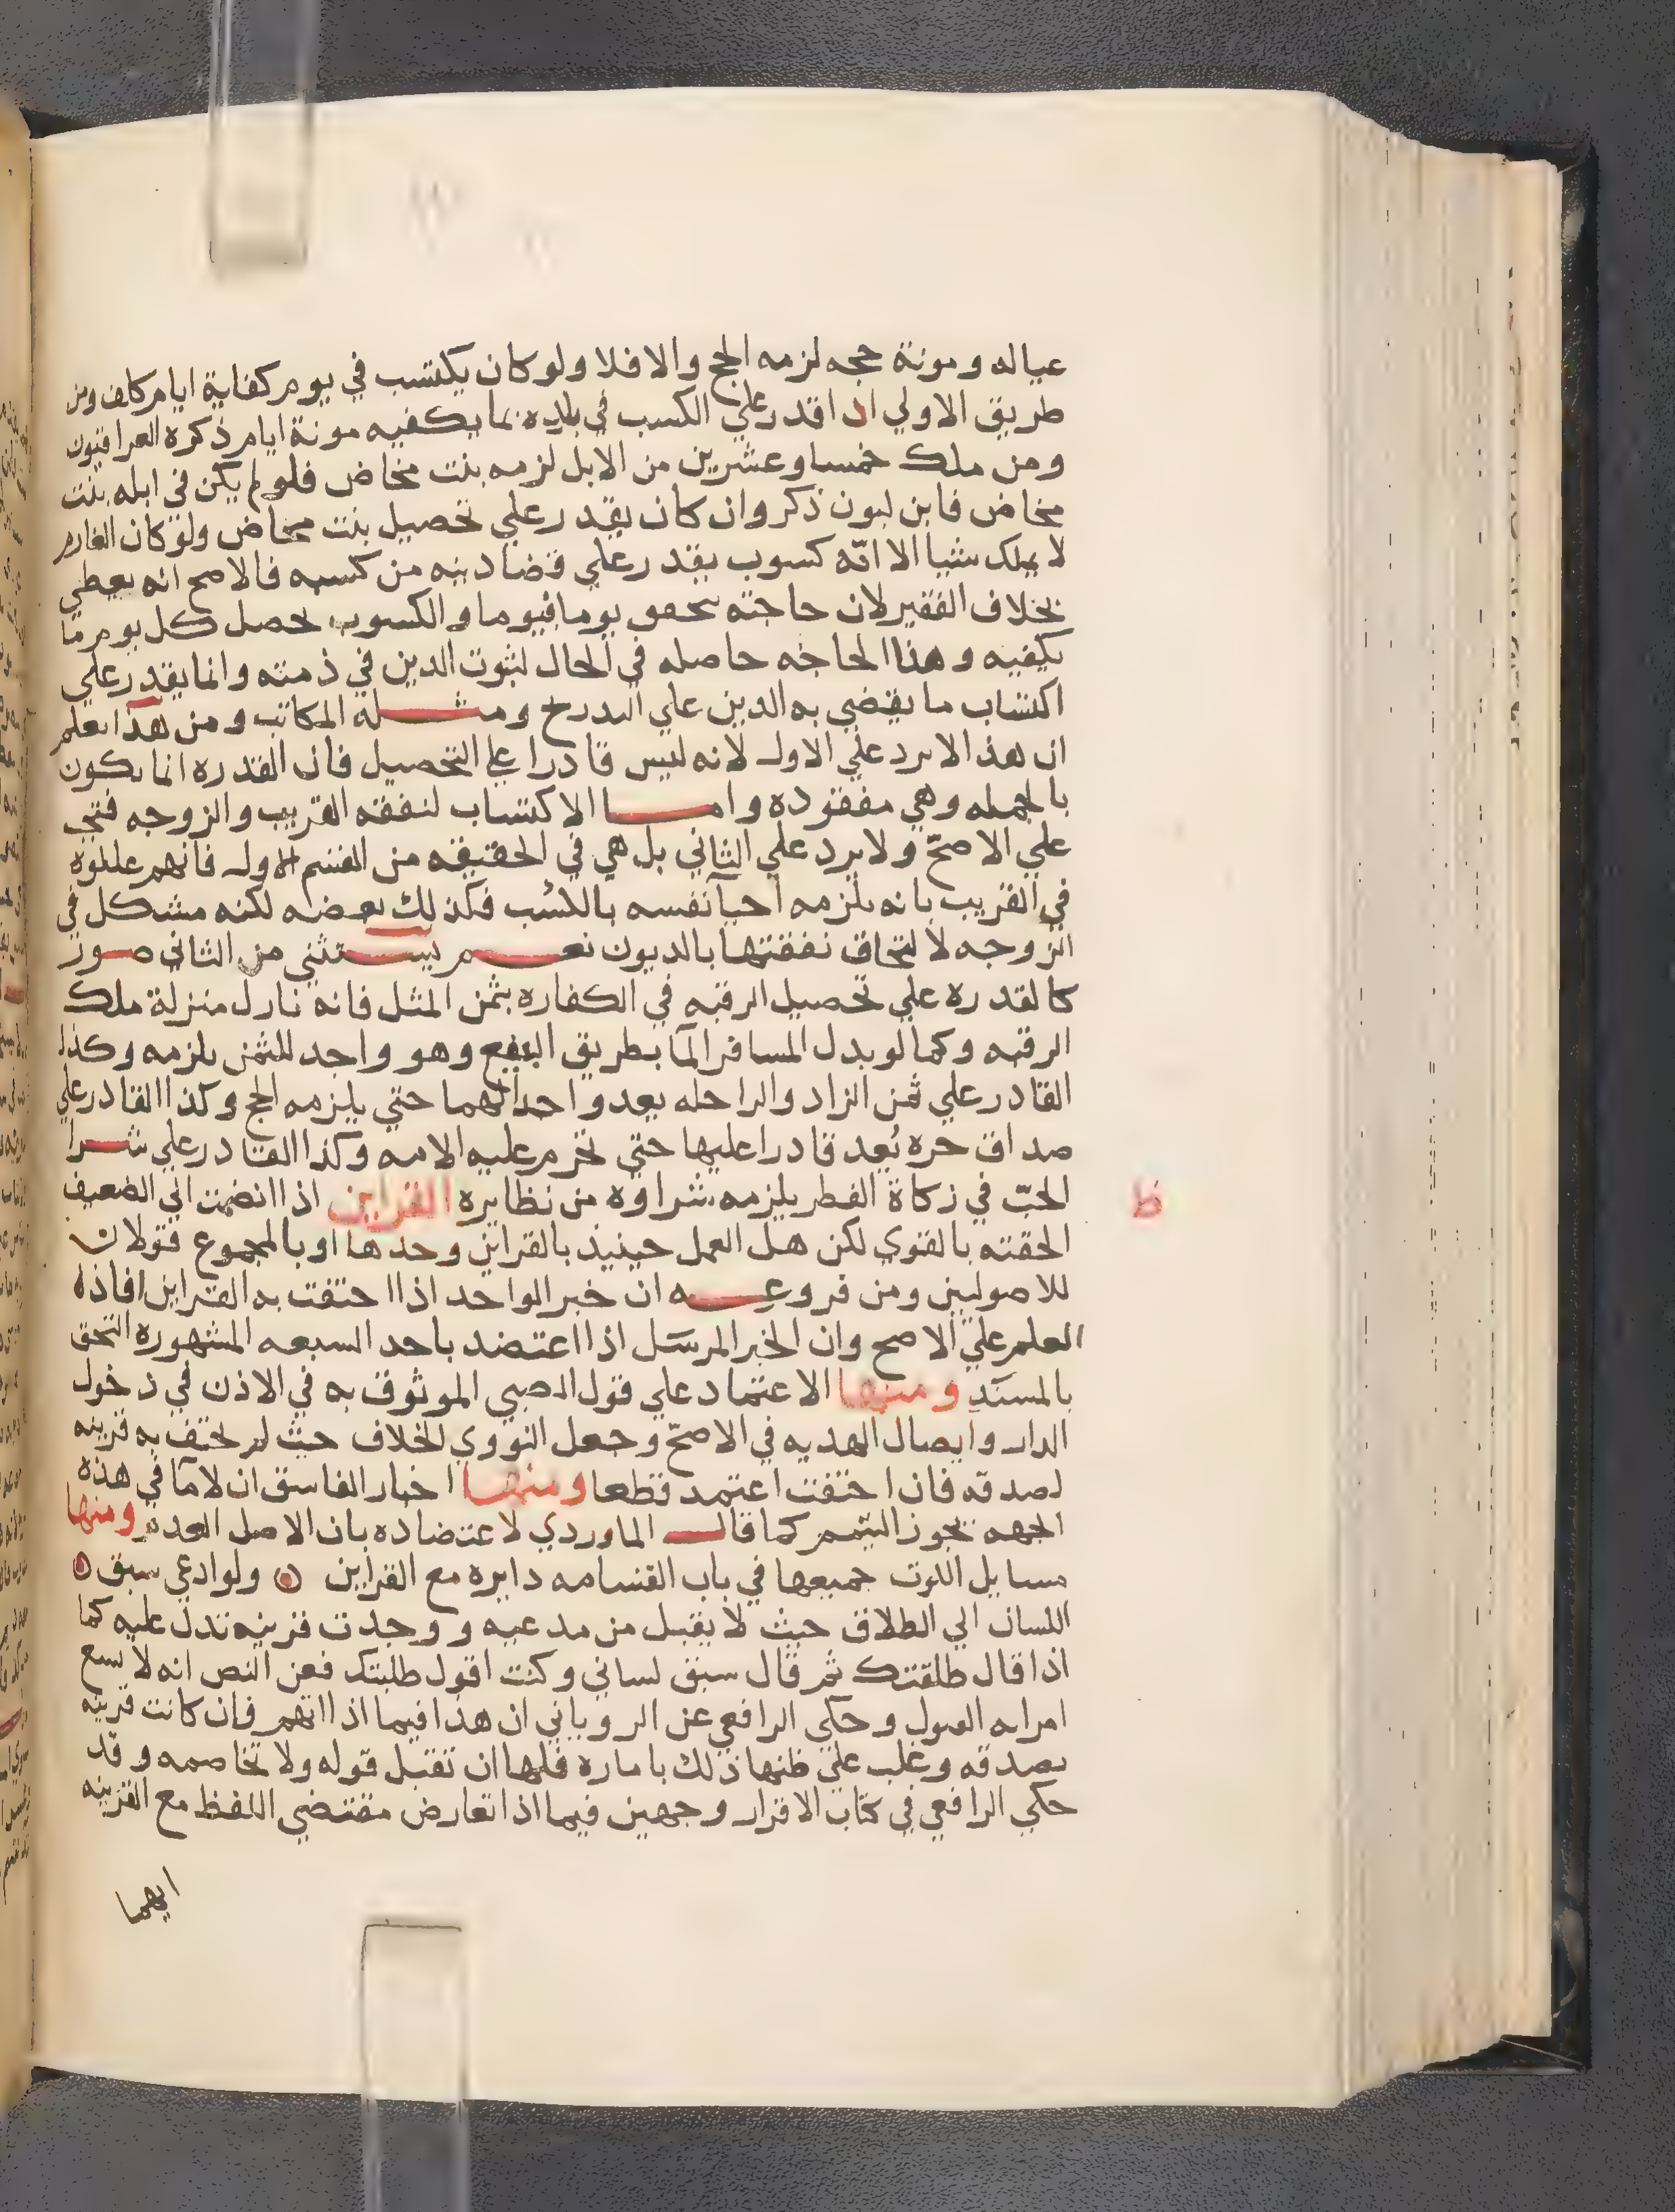 عياله ومونة حجه لزمه الحج والا فلا ولو كان يكتسب في يوم كفاية ايام كلف ومن
طريق الاولي اذا قدر علي الكسب في بلده بما يكفيه مونة ايام ذكره العراقيون
ومن ملك خمسا وعشرين من الابل لزمه بنت مخاض فلو لم يكن في ابله بنت
مخاض فابن لبون ذكر وان كان يقدر علي تحصيل بنت مخاض ولو كان الغارم
لا يملك شيا الا انه كسوب يقدر علي قضا دينه من كسبه فالاصح انه يعطي
بخلاف الفقير لان حاجته تتحقق يوما فيوما والكسوب يحصل كل يوم ما
يكفيه وهذا الحاجه حاصله في الحال لثبوت الدين في ذمته وانما يقدر علي
اكتساب ما يقضي به الدين علي التدرج ومثله المكاتب ومن هذا يعلم
ان هذا لا يرد علي الاول لانه ليس قادرا علي التحصيل فان القدره انما يكون
بالجمله وهي مفقوده واما الاكتساب لنفقه القريب والزوجه فتجب
علي الاصح ولا يرد علي الثاني بل هي في الحقيقه من القسم الاول فانهم عللوه
في القريب بانه يلزمه احيا نفسه بالكسب فكذلك بعضه لكنه مشكل في
الزوجه لالتحاق نفقتها بالديون نعم يستثني من الثاني صور
كالقدره علي تحصيل الرقبه في الكفاره بثمن المثل فانه نازل منزلة ملك
الرقبه وكما لو بدل المسافر الما بطريق البيع وهو واجد للثمن يلزمه وكذا
القادر علي ثمن الزاد والراحله يعد واجدا لهما حتي يلزمه الحج وكذا القادر علي
صداق حره يُعد قادرا عليها حتي تحرم عليه الامه وكذا القادر علي شرا
الحبّ في زكاة الفطر يلزمه شراوه من نظايره القراين اذا انضمت الي الضعيف
ظ
الحقته بالقوي لكن هل العمل حينيذ بالقراين وحدها او بالمجموع قولان
للاصوليين ومن فروعه ان خبر الواحد اذا احتفت به القراين افاذه
العلم علي الاصح وان الخبر المرسَل اذا اعتضد باحد السبعه المشهوره التحق
بالمسند ومنها الاعتماد علي قول الصبي الموثوق به في الاذن في دخول
الدار وايصال الهديه في الاصح وجعل النووي الخلاف حيث لم تحتف به قرينه
لصدقه فان احتفت اعتمد قطعا ومنها اخبار الفاسق ان لا ما في هذه
الجهه يجوز التيمم كما قال الماوردي لاعتضاده بان الاصل العدم ومنها
مسايل اللوث جميعها في باب القسامه دايره مع القراين ه ولو ادعي سبق ه
اللسان الي الطلاق حيث لا يقبل من مدعيه ووجدت قرينه تدل عليه كما
اذا قال طلقتك ثم قال سبق لساني وكنت اقول طلبتك فعن النص انه لا يسع
امراته القبول وحكي الرافعي عن الروياني ان هذا فيما اذا اتهم فان كانت قرينه
بصدقه وغلب علي ظنها ذلك بامارة فلها ان تقبل قوله ولا تخاصمه وقد
حكي الرافعي في كتاب الاقرار وجهين فيما اذا تعارض مقتضي اللفظ مع القرينه
ايهما